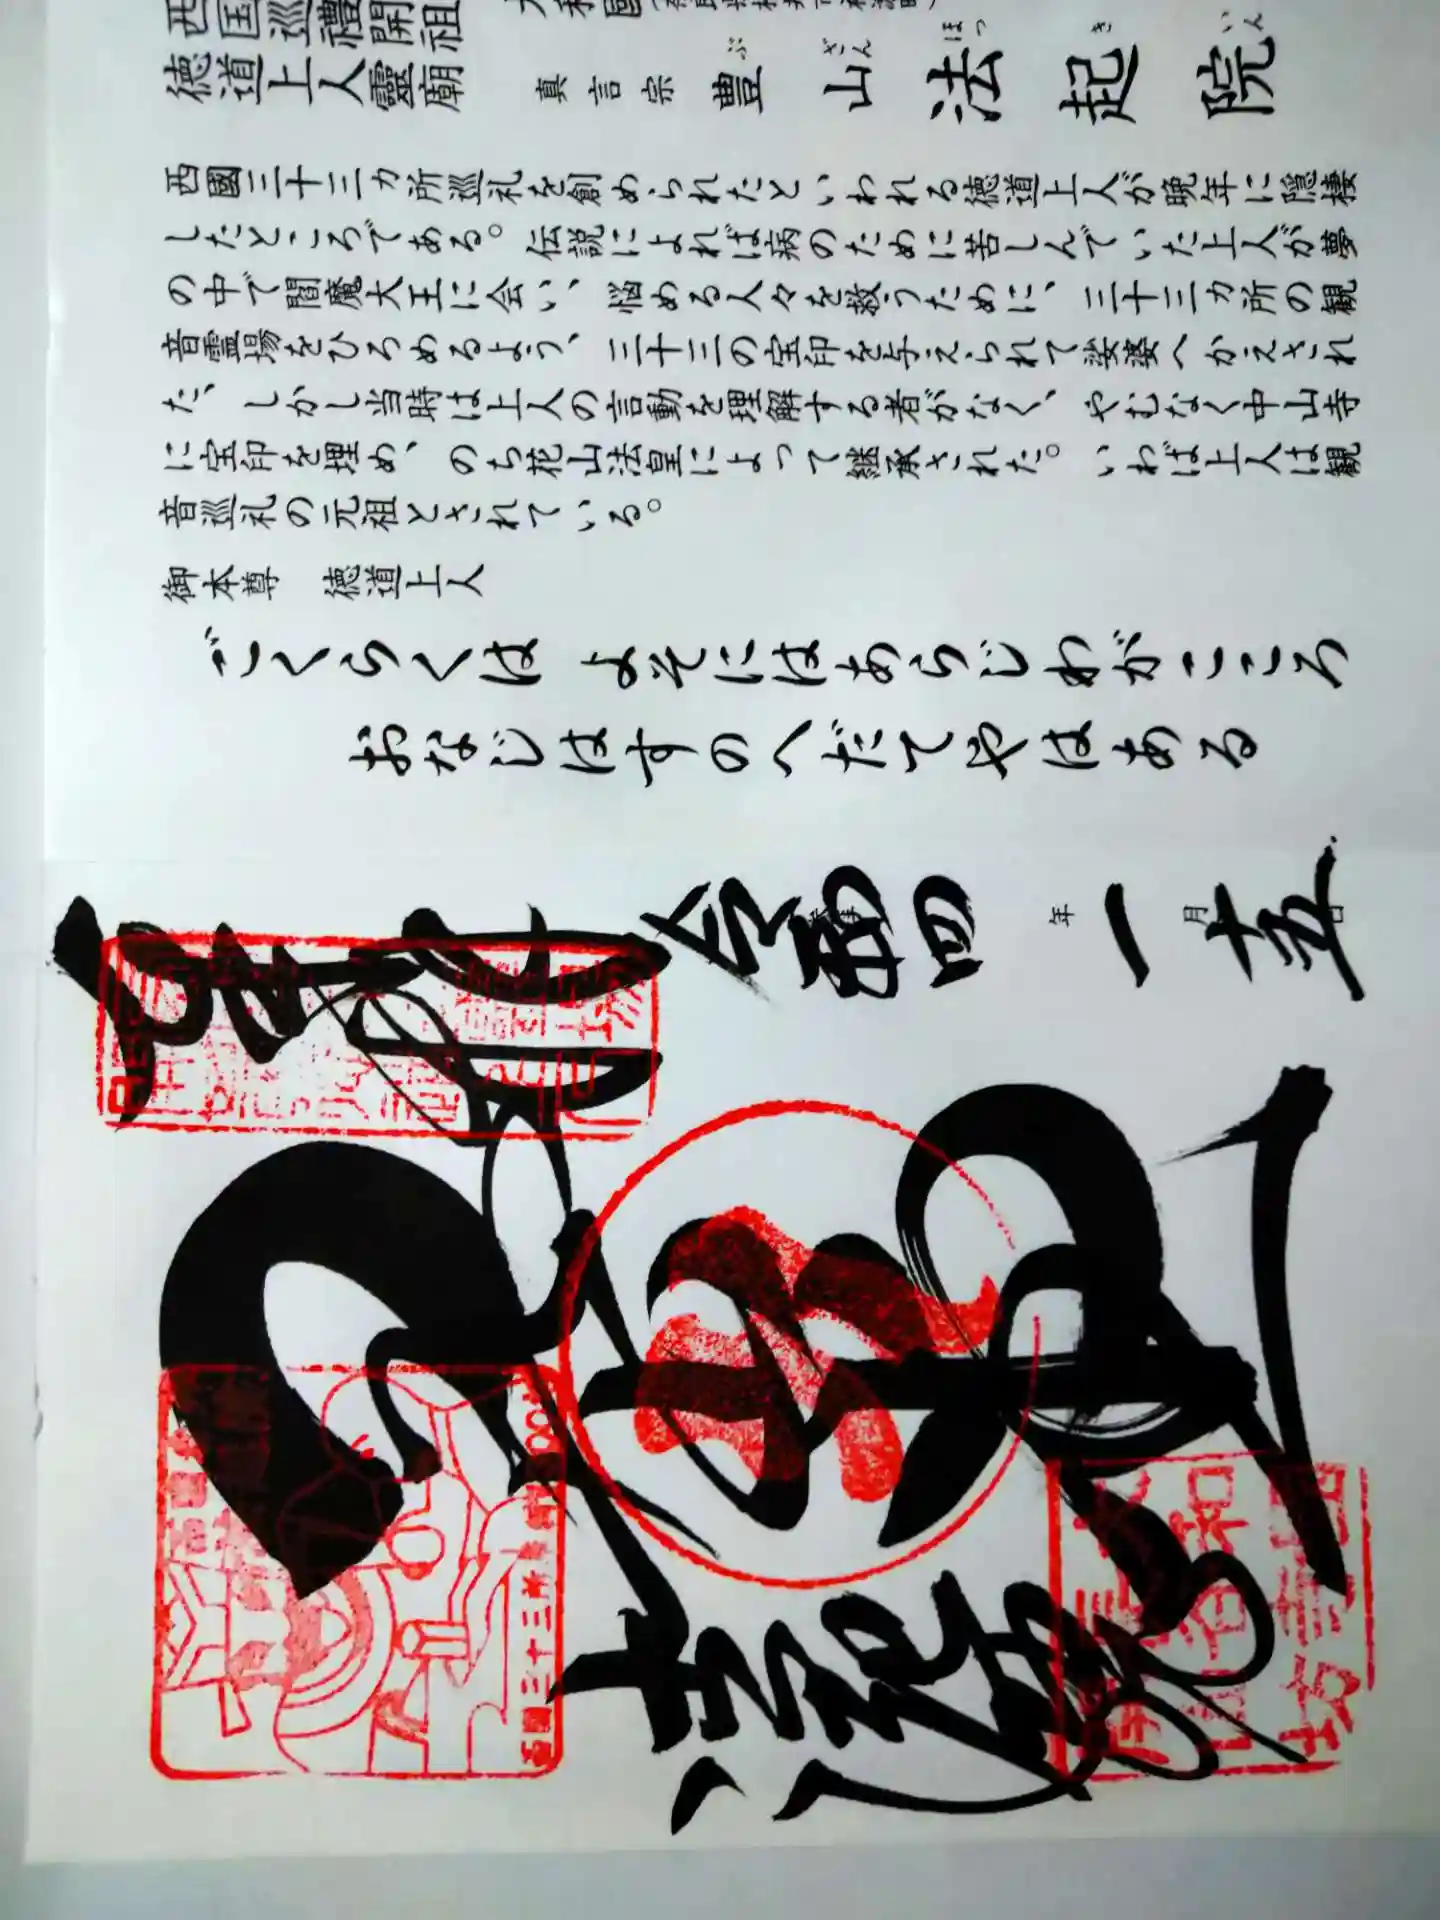 西国巡禮開祖
徳道上人靈廟
大和國
真言宗 豊山 法起院
ぶ ざん ほっ き いん
西國三十三カ所巡礼を創められたといわれる徳道上人が晩年に隠棲
したところである。伝説によれば病のために苦しんでいた上人が夢
の中で閻魔大王に会い、悩める人々を救うために、三十三カ所の観
音霊場をひろめるよう、三十三の宝印を与えられて娑婆へかえされ
た、しかし当時は上人の言動を理解する者がなく、やむなく中山寺
に宝印を埋め、のち花山法皇によって継承された。いわば上人は観
音巡礼の元祖とされている。
御本尊 徳道上人
ごくらくは よそにはあらじわがこころ
おなじはすのへだてやはある
令和四年一月十五日
奉拝
法起院
西國三十三所